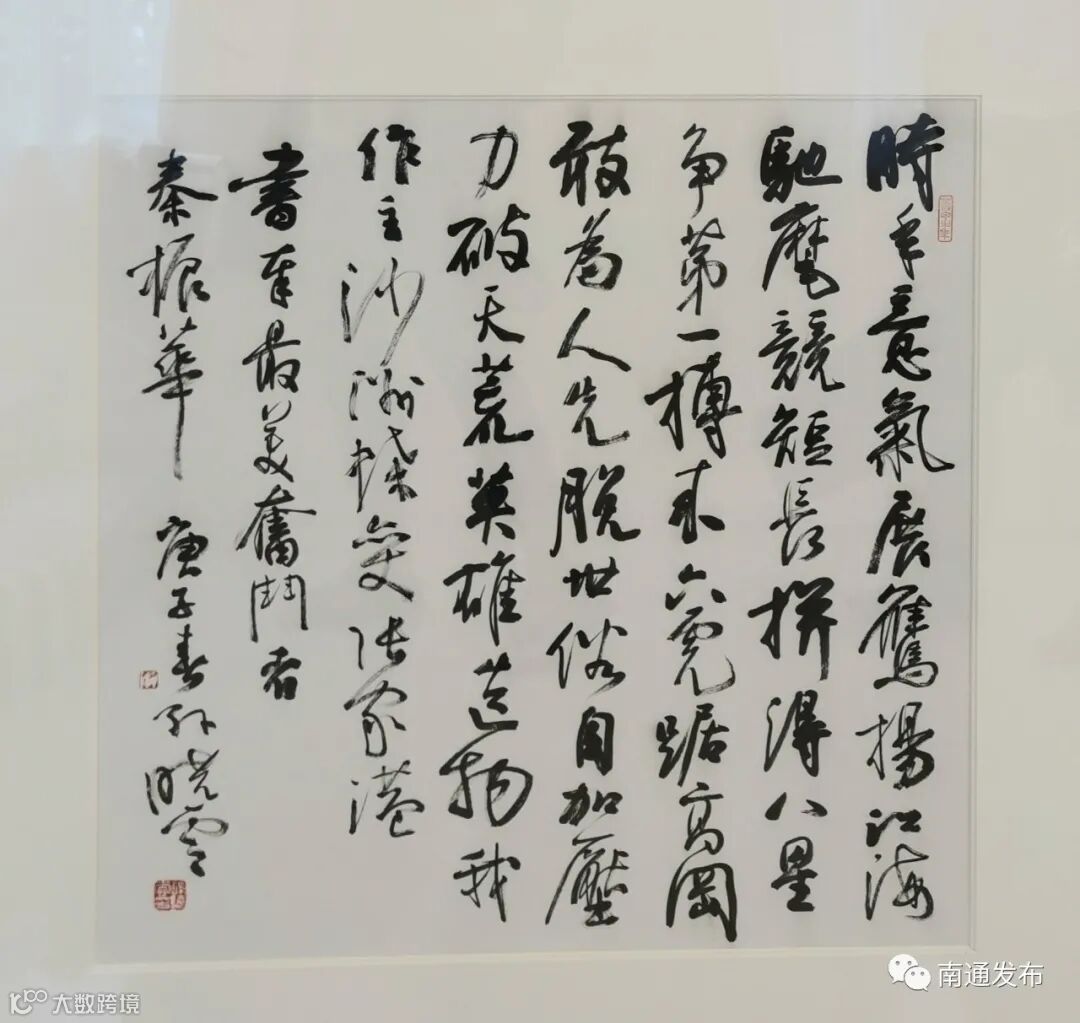 時年意氣展鷹揚江海
馳騁競短長拼得八星
争第一搏來六虎踞高岡
敢為人先脱世俗自加壓
力破天荒英雄造物我
作主沙洲蝶变张家港
書奉最美奮鬥者
秦振華 庚子春孙曉雲
南通发布
大数跨境